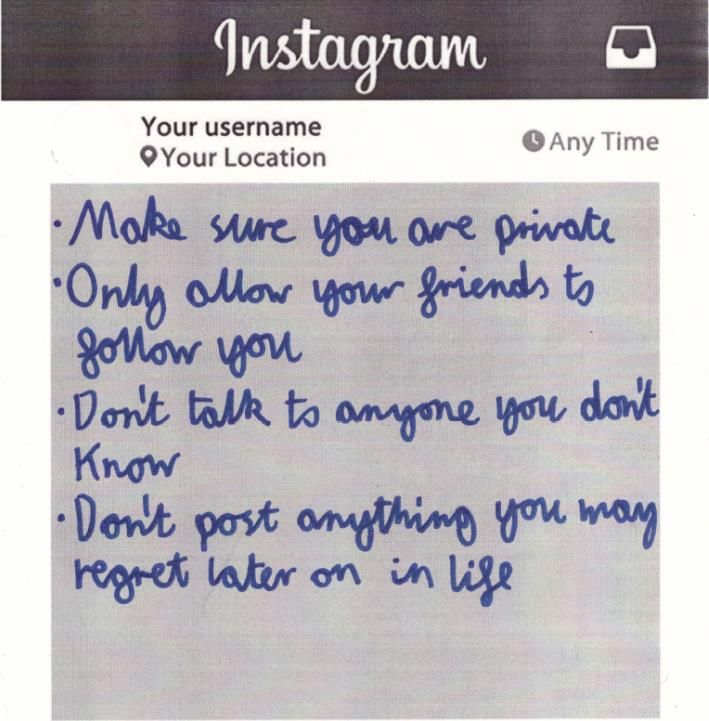 Instagram
Your username
Your Location
Any Time
·Make sure you are private
·Only allow your friends to
follow you
·Don't talk to anyone you don't
know
·Don't post anything you may
regret later on in life